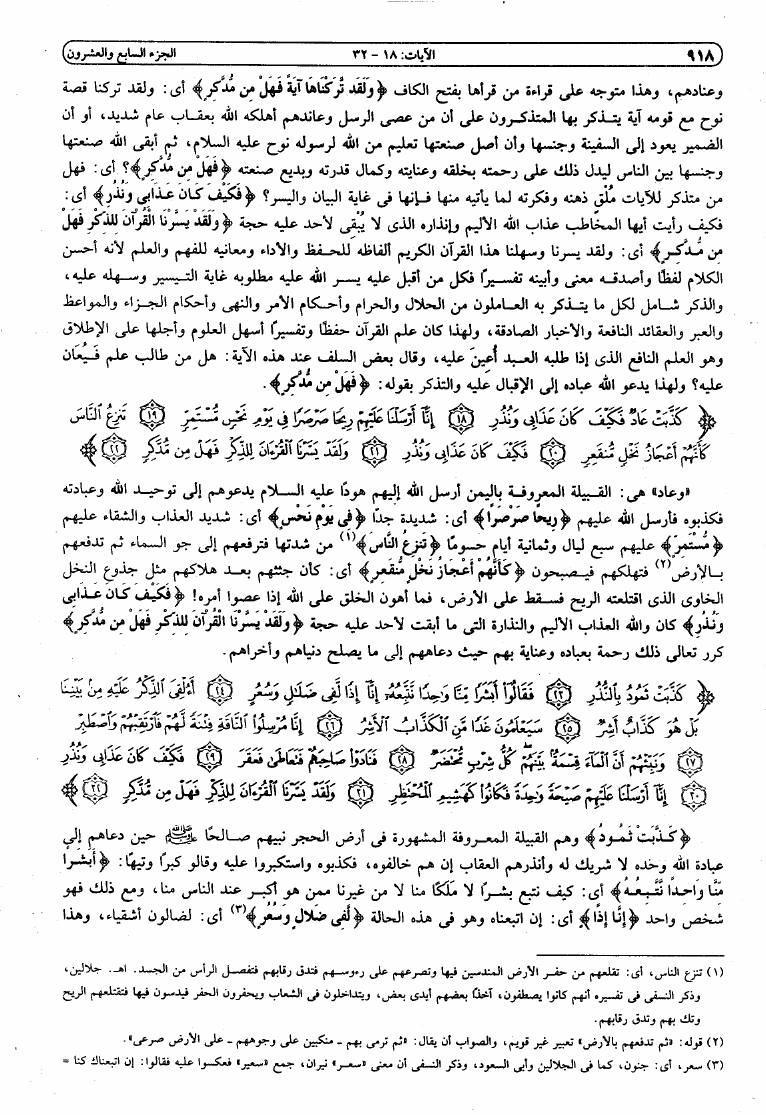 ٩١٨ الآيات: ١٨ – ٣٢ الجزء السابع والعشرون
وعنادهم، وهذا متوجه على قراءة من قرأها بفتح الكاف ﴿وَلَقَد تَّرَكْنَاهَا آيَةً فَهَلْ مِن مُّدَّكِرٍ﴾ أى: ولقد تركنا قصة
نوح مع قومه آية يتذكر بها المتذكرون على أن من عصى الرسل وعاندهم أهلكه الله بعقاب عام شديد، أو أن
الضمير يعود إلى السفينة وجنسها وأن أصل صنعتها تعليم من الله لرسوله نوح عليه السلام، ثم أبقى الله صنعتها
وجنسها بين الناس ليدل ذلك على رحمته بخلقه وعنايته وكمال قدرته وبديع صنعته ﴿فَهَلْ مِن مُّدَّكِرٍ﴾؟ أى: فهل
من متذكر للآيات مُلْقٍ ذهنه وفكرته لما يأتيه منها فإنها فى غاية البيان واليسر؟ ﴿فَكَيْفَ كَانَ عَذَابِي وَنُذُرِ﴾ أى:
فكيف رأيت أيها المخاطب عذاب الله الأليم وإنذاره الذى لا يُبْقِى لأحد عليه حجة ﴿وَلَقَدْ يَسَّرْنَا الْقُرْآنَ لِلذِّكْرِ فَهَلْ
مِن مُّدَّكِرٍ﴾ أى: ولقد يسرنا وسهلنا هذا القرآن الكريم ألفاظه للحفظ والأداء ومعانيه للفهم والعلم لأنه أحسن
الكلام لفظًا وأصدقه معنى وأبينه تفسيرًا فكل من أقبل عليه يسر الله عليه مطلوبه غاية التيسير وسهله عليه،
والذكر شامل لكل ما يتذكر به العاملون من الحلال والحرام وأحكام الأمر والنهى وأحكام الجزاء والمواعظ
والعبر والعقائد النافعة والأخبار الصادقة، ولهذا كان علم القرآن حفظًا وتفسيرًا أسهل العلوم وأجلها على الإطلاق
وهو العلم النافع الذى إذا طلبه العبد أُعِينَ عليه، وقال بعض السلف عند هذه الآية: هل من طالب علم فيُعَان
عليه؟ ولهذا يدعو الله عباده إلى الإقبال عليه والتذكر بقوله: ﴿فَهَلْ مِن مُّدَّكِرٍ﴾.
﴿كَذَّبَتْ عَادٌ فَكَيْفَ كَانَ عَذَابِي وَنُذُرِ ﴿١٨﴾ إِنَّا أَرْسَلْنَا عَلَيْهِمْ رِيحًا صَرْصَرًا فِي يَوْمِ نَحْسٍ مُّسْتَمِرٍّ ﴿١٩﴾ تَنزِعُ النَّاسَ
كَأَنَّهُمْ أَعْجَازُ نَخْلٍ مُّنقَعِرٍ ﴿٢٠﴾ فَكَيْفَ كَانَ عَذَابِي وَنُذُرِ ﴿٢١﴾ وَلَقَدْ يَسَّرْنَا الْقُرْءَانَ لِلذِّكْرِ فَهَلْ مِن مُّدَّكِرٍ ﴿٢٢﴾﴾
«وعاد» هى: القبيلة المعروفة باليمن أرسل الله إليهم هودًا عليه السلام يدعوهم إلى توحيد الله وعبادته
فكذبوه فأرسل الله عليهم ﴿رِيحًا صَرْصَرًا﴾ أى: شديدة جدًا ﴿فِى يَوْمِ نَحْسٍ﴾ أى: شديد العذاب والشقاء عليهم
﴿مُّسْتَمِرٍّ﴾ عليهم سبع ليال وثمانية أيام حسومًا ﴿تَنزِعُ النَّاسَ﴾(١) من شدتها فترفعهم إلى جو السماء ثم تدفعهم
بالأرض(٢) فتهلكهم فيصبحون ﴿كَأَنَّهُمْ أَعْجَازُ نَخْلٍ مُّنقَعِرٍ﴾ أى: كأن جثثهم بعد هلاكهم مثل جذوع النخل
الخاوى الذى اقتلعته الريح فسقط على الأرض، فما أهون الخلق على الله إذا عصوا أمره! ﴿فَكَيْفَ كَانَ عَذَابِي
وَنُذُرِ﴾ كان والله العذاب الأليم والنذارة التى ما أبقت لأحد عليه حجة ﴿وَلَقَدْ يَسَّرْنَا الْقُرْآنَ لِلذِّكْرِ فَهَلْ مِن مُّدَّكِرٍ﴾
كرر تعالى ذلك رحمة بعباده وعناية بهم حيث دعاهم إلى ما يصلح دنياهم وأخراهم.
﴿كَذَّبَتْ ثَمُودُ بِالنُّذُرِ ﴿٢٣﴾ فَقَالُوا أَبَشَرًا مِّنَّا وَاحِدًا نَّتَّبِعُهُ إِنَّا إِذًا لَّفِي ضَلَالٍ وَسُعُرٍ ﴿٢٤﴾ أَءُلْقِيَ الذِّكْرُ عَلَيْهِ مِن بَيْنِنَا
بَلْ هُوَ كَذَّابٌ أَشِرٌ ﴿٢٥﴾ سَيَعْلَمُونَ غَدًا مَّنِ الْكَذَّابُ الْأَشِرُ ﴿٢٦﴾ إِنَّا مُرْسِلُوا النَّاقَةِ فِتْنَةً لَّهُمْ فَارْتَقِبْهُمْ وَاصْطَبِرْ
﴿٢٧﴾ وَنَبِّئْهُمْ أَنَّ الْمَاءَ قِسْمَةٌ بَيْنَهُمْ كُلُّ شِرْبٍ مُّحْتَضَرٌ ﴿٢٨﴾ فَنَادَوْا صَاحِبَهُمْ فَتَعَاطَى فَعَقَرَ ﴿٢٩﴾ فَكَيْفَ كَانَ عَذَابِي وَنُذُرِ
﴿٣٠﴾ إِنَّا أَرْسَلْنَا عَلَيْهِمْ صَيْحَةً وَاحِدَةً فَكَانُوا كَهَشِيمِ الْمُحْتَظِرِ ﴿٣١﴾ وَلَقَدْ يَسَّرْنَا الْقُرْءَانَ لِلذِّكْرِ فَهَلْ مِن مُّدَّكِرٍ ﴿٣٢﴾﴾
﴿كَذَّبَتْ ثَمُودُ﴾ وهم القبيلة المعروفة المشهورة فى أرض الحجر نبيهم صالحًا ﷺ حين دعاهم إلى
عبادة الله وحده لا شريك له وأنذرهم العقاب إن هم خالفوه، فكذبوه واستكبروا عليه وقالو كبرًا وتيهًا: ﴿أَبَشَرًا
مِّنَّا وَاحِدًا نَّتَّبِعُهُ﴾ أى: كيف نتبع بشرًا لا مَلَكًا منا لا من غيرنا ممن هو أكبر عند الناس منا، ومع ذلك فهو
شخص واحد ﴿إِنَّا إِذًا﴾ أى: إن اتبعناه وهو فى هذه الحالة ﴿لَّفِي ضَلالٍ وَسُعُرٍ﴾(٣) أى: لضالون أشقياء، وهذا
(١) تنزع الناس، أى: تقلعهم من حفر الأرض المندسين فيها وتصرعهم على رءوسهم فتدق رقابهم فتفصل الرأس من الجسد. اهـ. جلالين،
وذكر النسفى فى تفسيره أنهم كانوا يصطفون، آخذًا بعضهم أيدى بعض، ويتداخلون فى الشعاب ويحفرون الحفر فيدسون فيها فتقتلعهم الريح
وتك بهم وتدق رقابهم.
(٢) قوله: «ثم تدفعهم بالأرض» تعبير غير قويم، والصواب أن يقال: «ثم ترمى بهم ـ منكبين على وجوههم ـ على الأرض صرعى».
(٣) سعر، أى: جنون، كما فى الجلالين وأبى السعود، وذكر النسفى أن معنى «سعر» نيران، جمع «سعير» فعكسوا عليه فقالوا: إن اتبعناك كنا =